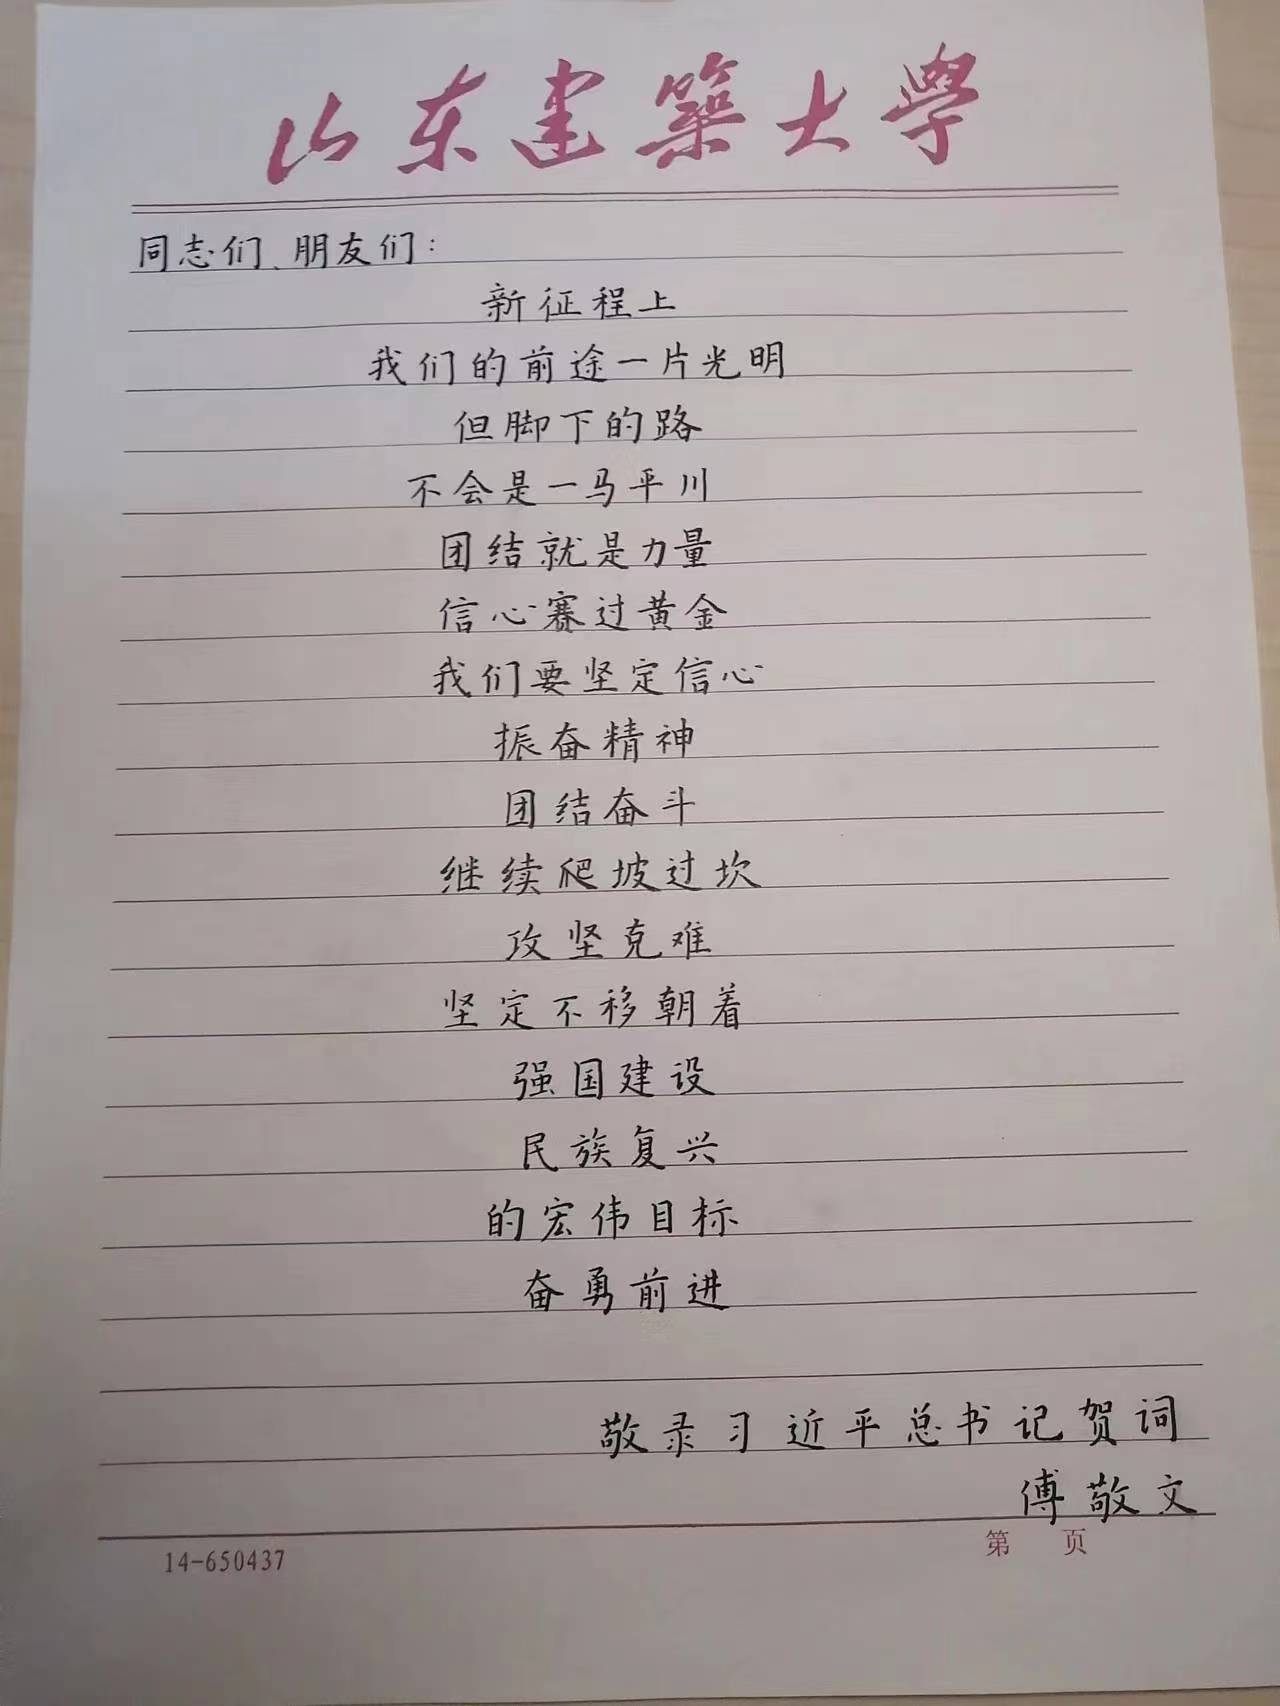 山东建築大學
同志们、朋友们：
新征程上
我们的前途一片光明
但脚下的路
不会是一马平川
团结就是力量
信心赛过黄金
我们要坚定信心
振奋精神
团结奋斗
继续爬坡过坎
攻坚克难
坚定不移朝着
强国建设
民族复兴
的宏伟目标
奋勇前进
敬录习近平总书记贺词
傅敬文
14-650437 第 页